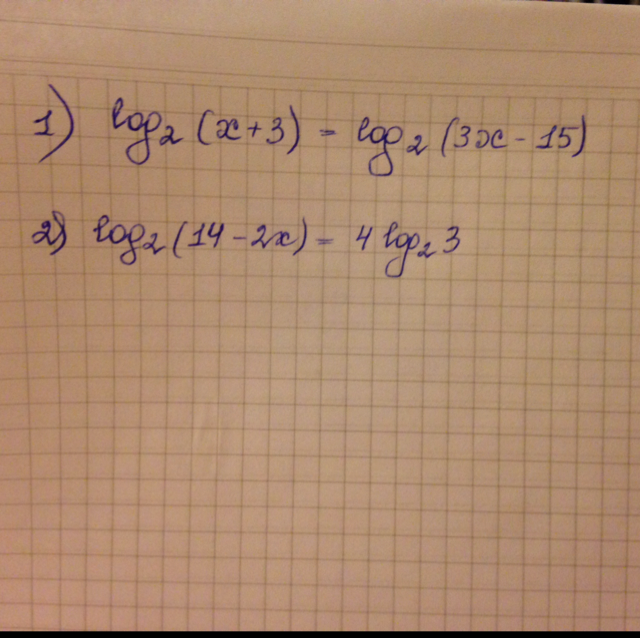 1) log₂ (x+3) = log₂ (3x - 15)
2) log₂ (14 - 2x) = 4 log₂ 3